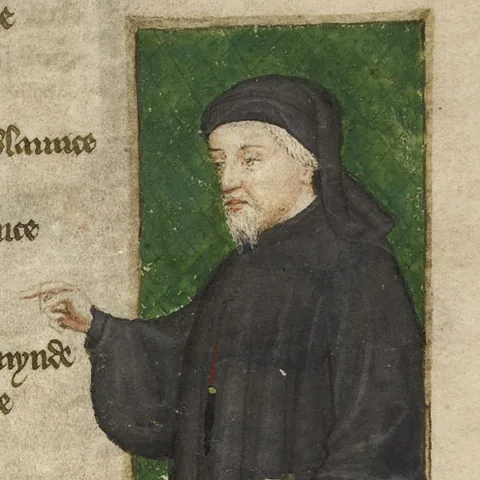 e
blaunce
nce
mynde
e